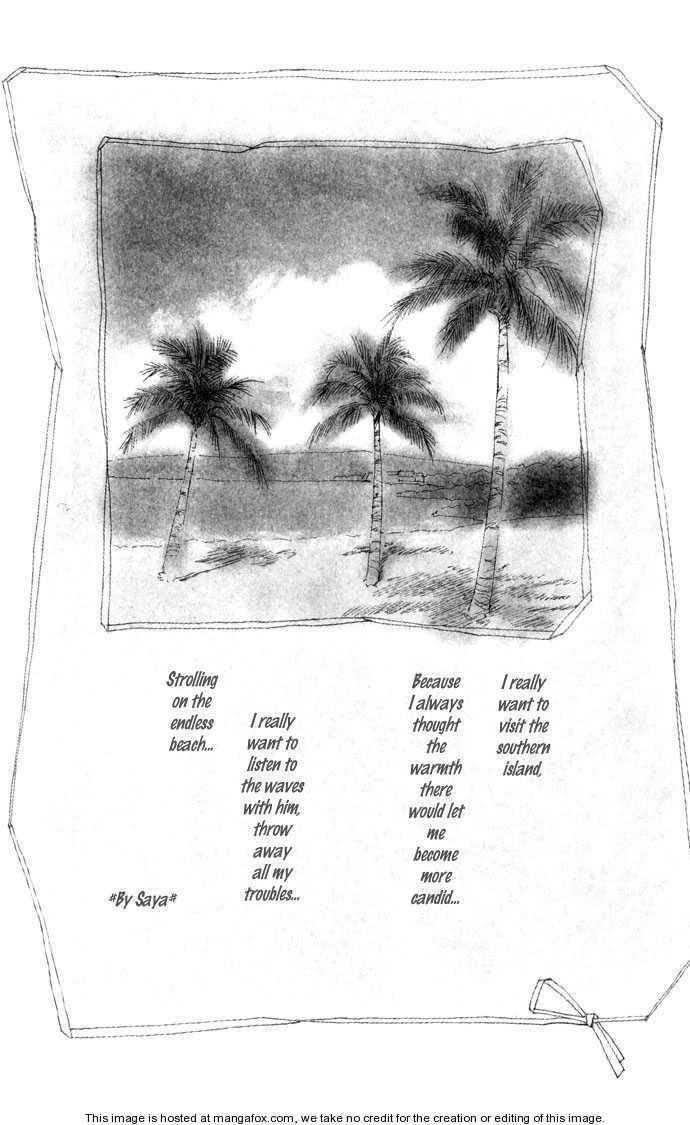 I really
want to
visit the
southern
island,
Because
I always
thought
the
warmth
there
would let
me
become
more
candid...
I really
want to
listen to
the waves
with him,
throw
away
all my
troubles...
Strolling
on the
endless
beach...
*By Saya*
This image is hosted at mangafox.com, we take no credit for the creation or editing of this image.